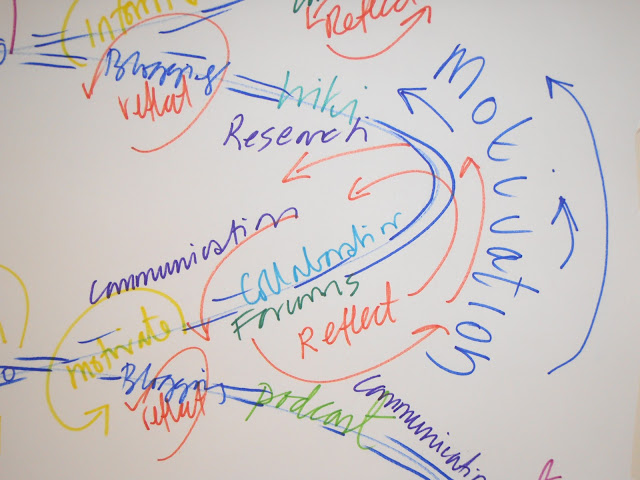 Reflect
Blogging
reflect
wiki
Research
Motivation
communication
Collaboration
Forums
Reflect
motivate
Blogging
reflect
podcast
communication